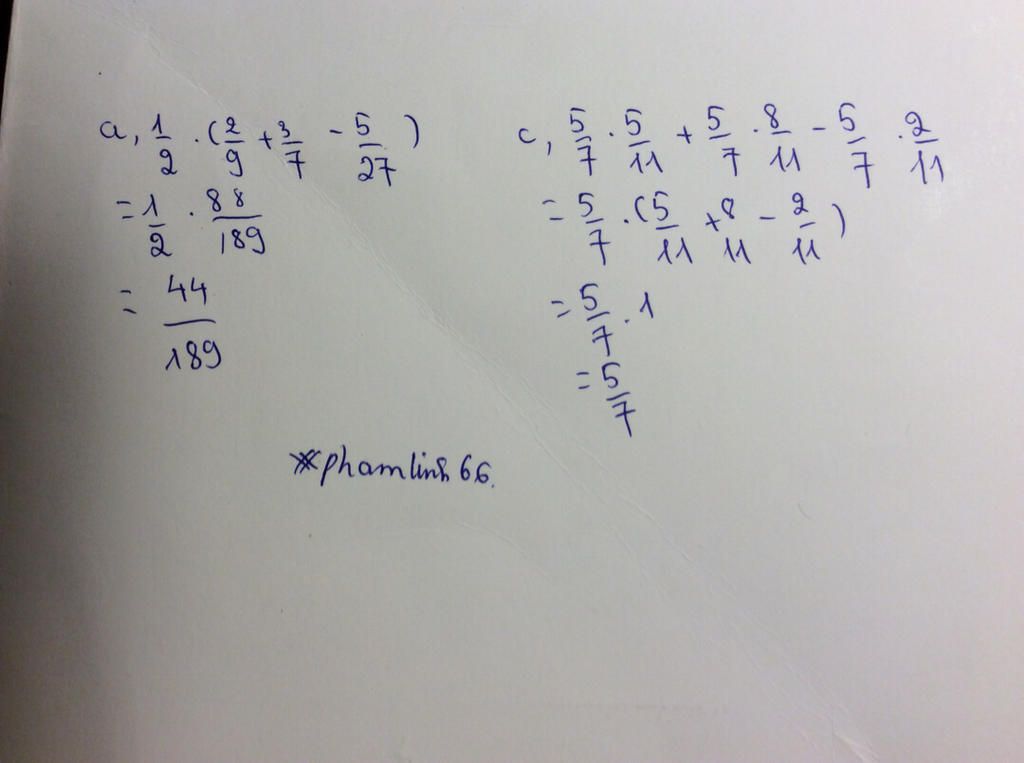 a, 1/2 . (2/9 + 3/7 - 5/27)
= 1/2 . 88/189
= 44/189
c, 5/7 . 5/11 + 5/7 . 8/11 - 5/7 . 2/11
= 5/7 . (5/11 + 8/11 - 2/11)
= 5/7 . 1
= 5/7
*phamlinh 66.